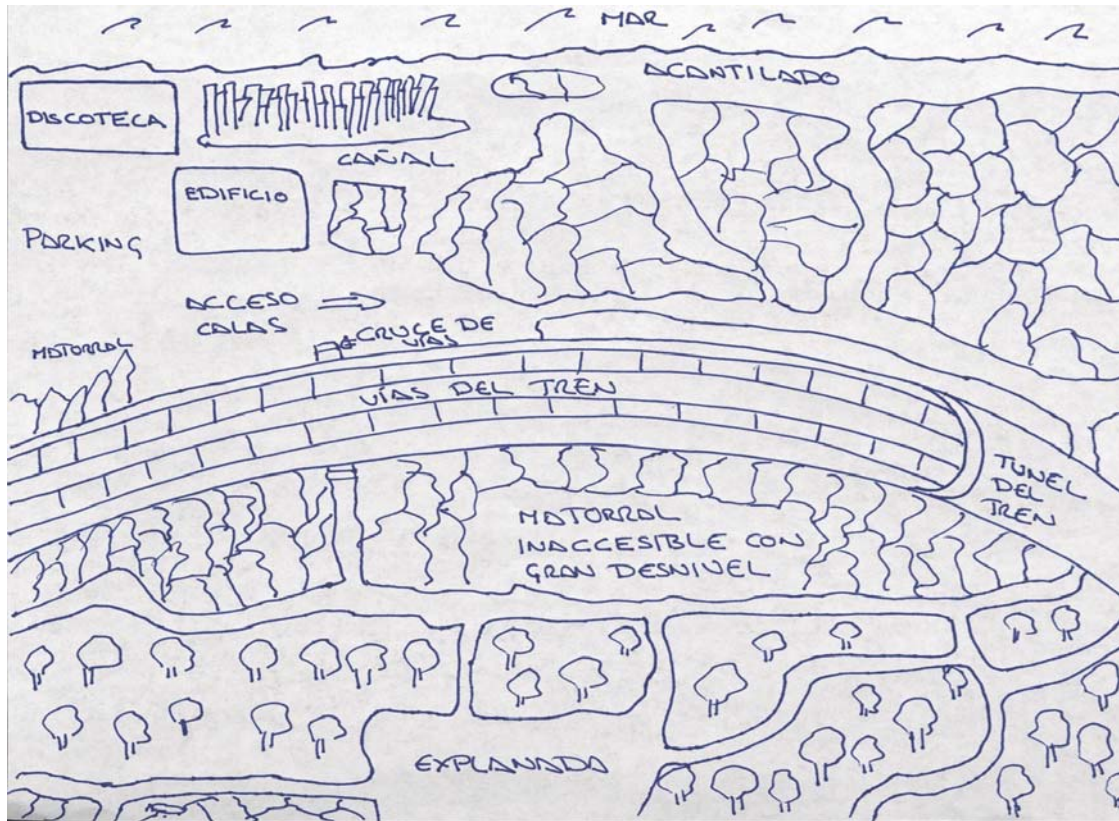 MAR
ACANTILADO
DISCOTECA
CAÑAL
EDIFICIO
PARKING
ACCESO
CALAS
CRUCE DE
VÍAS
MOTORRAL
VÍAS DEL TREN
TUNEL
DEL
TREN
MOTORRAL
INACCESIBLE CON
GRAN DESNIVEL
EXPLANADA